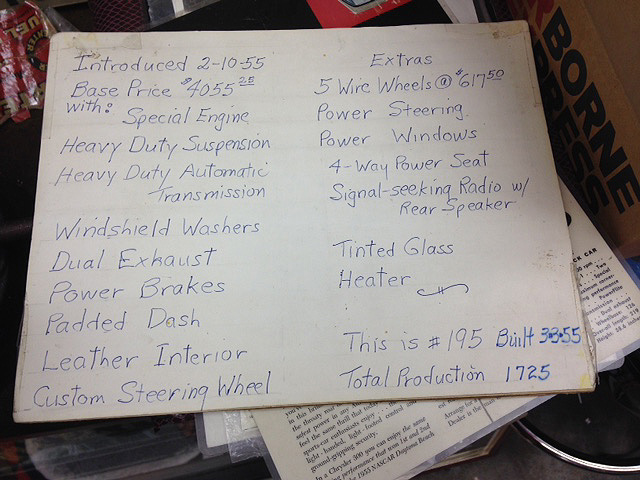 Introduced 2-10-55
Base Price $4055 25
with:
Special Engine
Heavy Duty Suspension
Heavy Duty Automatic
Transmission
Windshield Washers
Dual Exhaust
Power Brakes
Padded Dash
Leather Interior
Custom Steering Wheel
Extras
5 Wire Wheels @ $617 50
Power Steering
Power Windows
4-Way Power Seat
Signal-seeking Radio w/
Rear Speaker
Tinted Glass
Heater
This is #195 Built 3-8-55
Total Production 1725
BORNE
PRESS
CK CAR
sports-car enthusiasts enjoy
light-handed, light-footed control
ground-gripping security.
In a Chrysler 300 you can enjoy the same
performance that won 1st and 2nd
the 1955 NASCAR Daytona Beach
Arrange for
Dealer is the